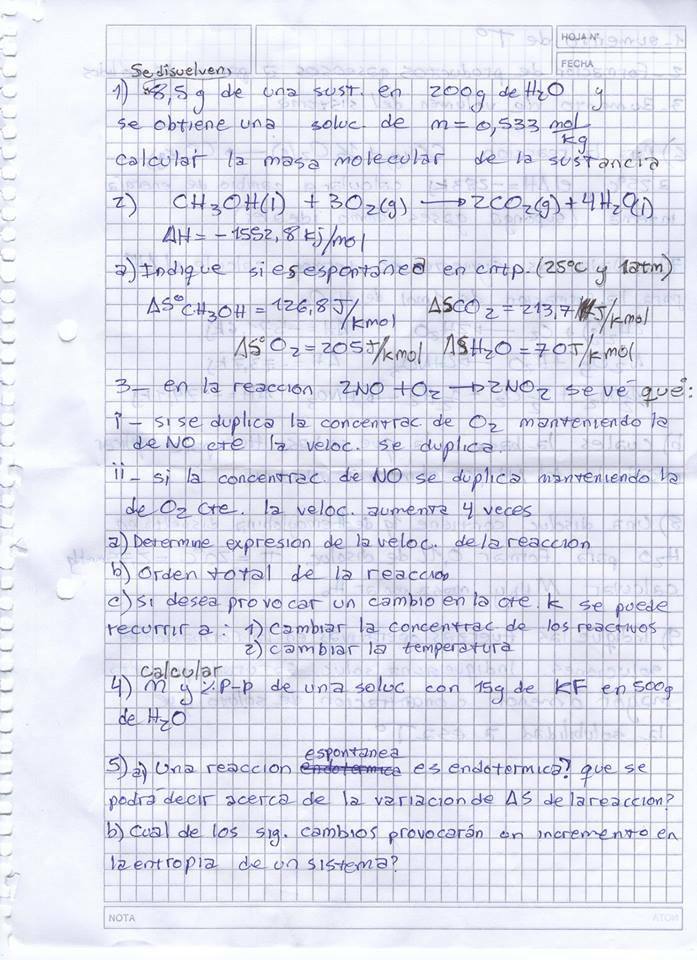 HOJA Nº
FECHA
Se disuelven,
1) 8,5g de una sust. en 200g de H2O y
se obtiene una soluc. de m = 0,533 mol/kg
calcular la masa molecular de la sustancia
2) CH3OH(l) + 3O2(g) ⟶ 2CO2(g) + 4H2O(l)
ΔH = -1552,8 kj/mol
a) Indique si es espontánea en cntp. (25°C y 1atm)
ΔS°CH3OH = 126,8 J/kmol ΔSCO2 = 213,7 J/kmol
ΔS°O2 = 205 J/kmol ΔSH2O = 70J/kmol
3_ en la reaccion 2NO + O2 ⟶ 2NO2 se vé que:
i - si se duplica la concentrac de O2 manteniendo la
de NO cte la veloc. se duplica.
ii - si la concentrac. de NO se duplica manteniendo la
de O2 cte. la veloc. aumenta 4 veces
a) Determine expresion de la veloc. de la reaccion
b) Orden total de la reaccion
c) si desea provocar un cambio en la cte. k se puede
recurrir a: 1) cambiar la concentrac de los reactivos
2) cambiar la temperatura
calcular
4) m y % P-P de una soluc con 15g de KF en 500g
de H2O
espontanea
5) a) Una reaccion endotermica es endotermica? que se
podrá decir acerca de la variacion de ΔS de la reaccion?
b) cual de los sig. cambios provocarán un incremento en
la entropia de un sistema?
NOTA